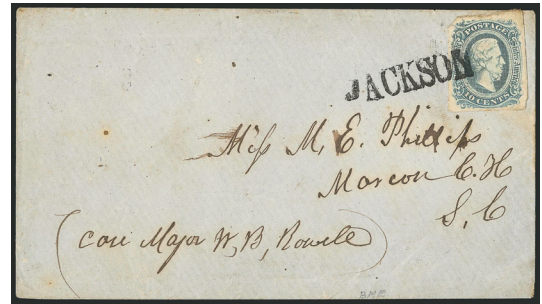 POSTAGE
TEN CENTS
JACKSON
Miss M, E. Phillips
Marion C. H
S, C
(care Major W, B, Rowell)